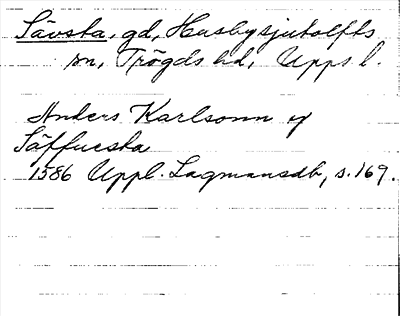 Sävsta, gd, Husbysjutolfts
sn, Trögds hd, Upps l.
Anders Karlsonn y
Säffuesta
1586 Uppl. Lagmansdb, s. 169.